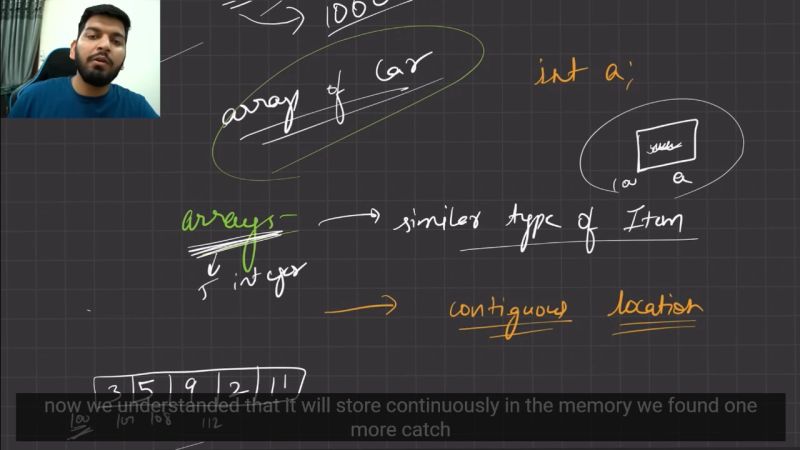 1000
array of Car
int a;
100 a
arrays- → similar type of Item
5 integer
→ contiguous location
3 5 9 2 11
100 104 108 112
now we understood that it will store continuously in the memory we found one
more catch